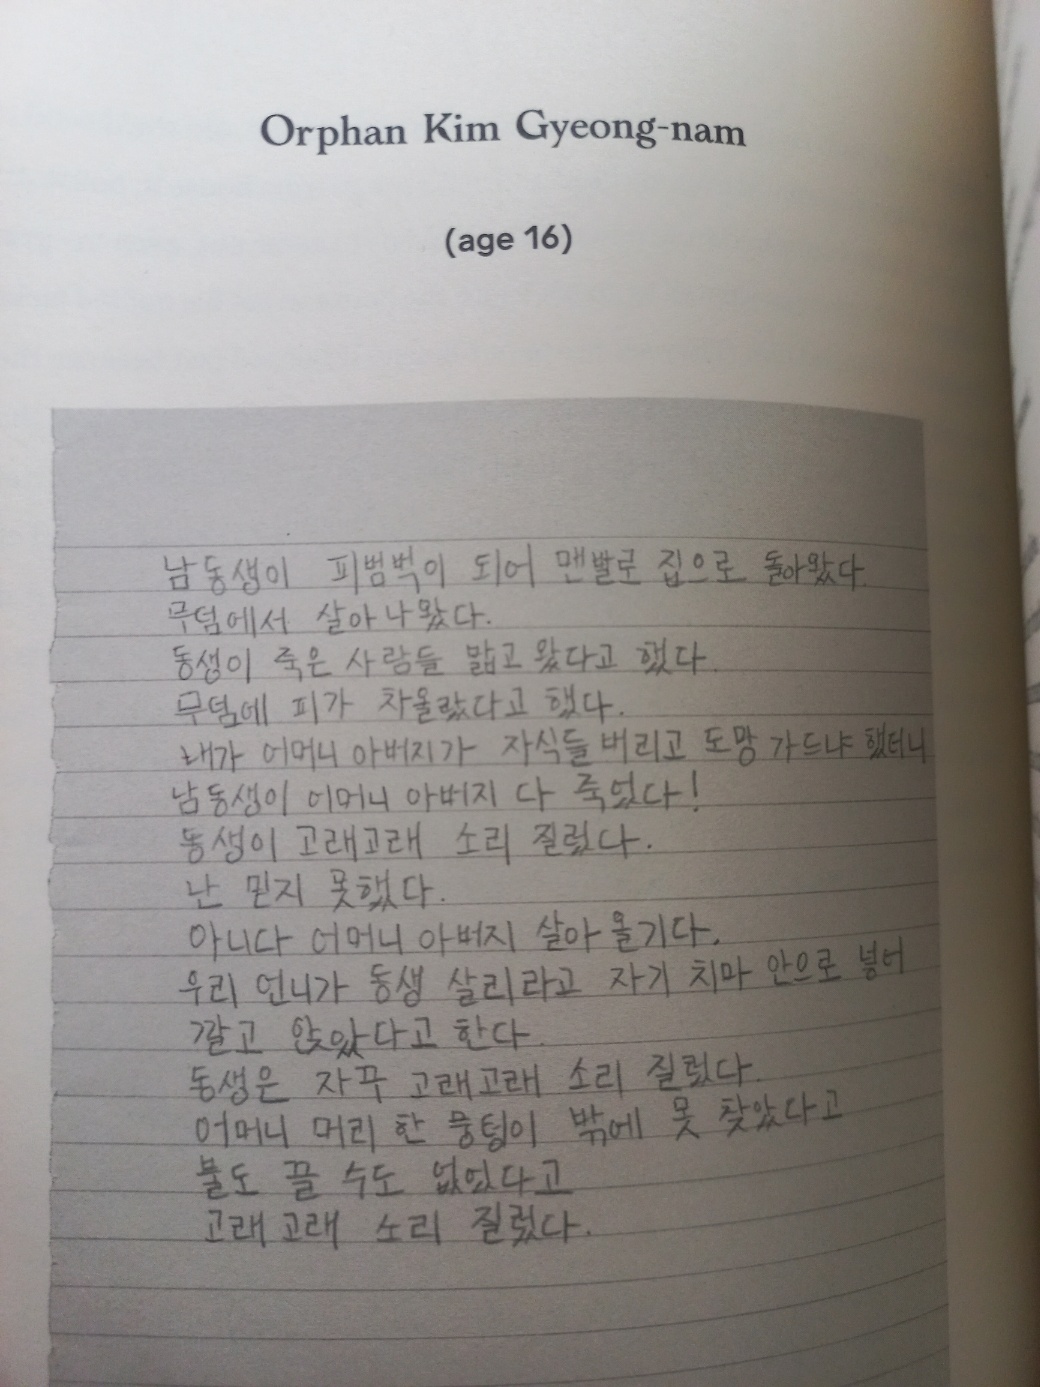 Orphan Kim Gyeong-nam
(age 16)
남동생이 피범벅이 되어 맨발로 집으로 돌아왔다.
무덤에서 살아 나왔다.
동생이 죽은 사람들 밟고 왔다고 했다.
무덤에 피가 차올랐다고 했다.
내가 어머니 아버지가 자식들 버리고 도망 가드냐 했더니
남동생이 어머니 아버지 다 죽었다!
동생이 고래고래 소리 질렀다.
난 믿지 못했다.
아니다 어머니 아버지 살아 올기다.
우리 언니가 동생 살리라고 자기 치마 안으로 넣어
깔고 앉았다고 한다.
동생은 자꾸 고래고래 소리 질렀다.
어머니 머리 한 뭉텅이 밖에 못 찾았다고
불도 끌 수도 없었다고
고래고래 소리 질렀다.